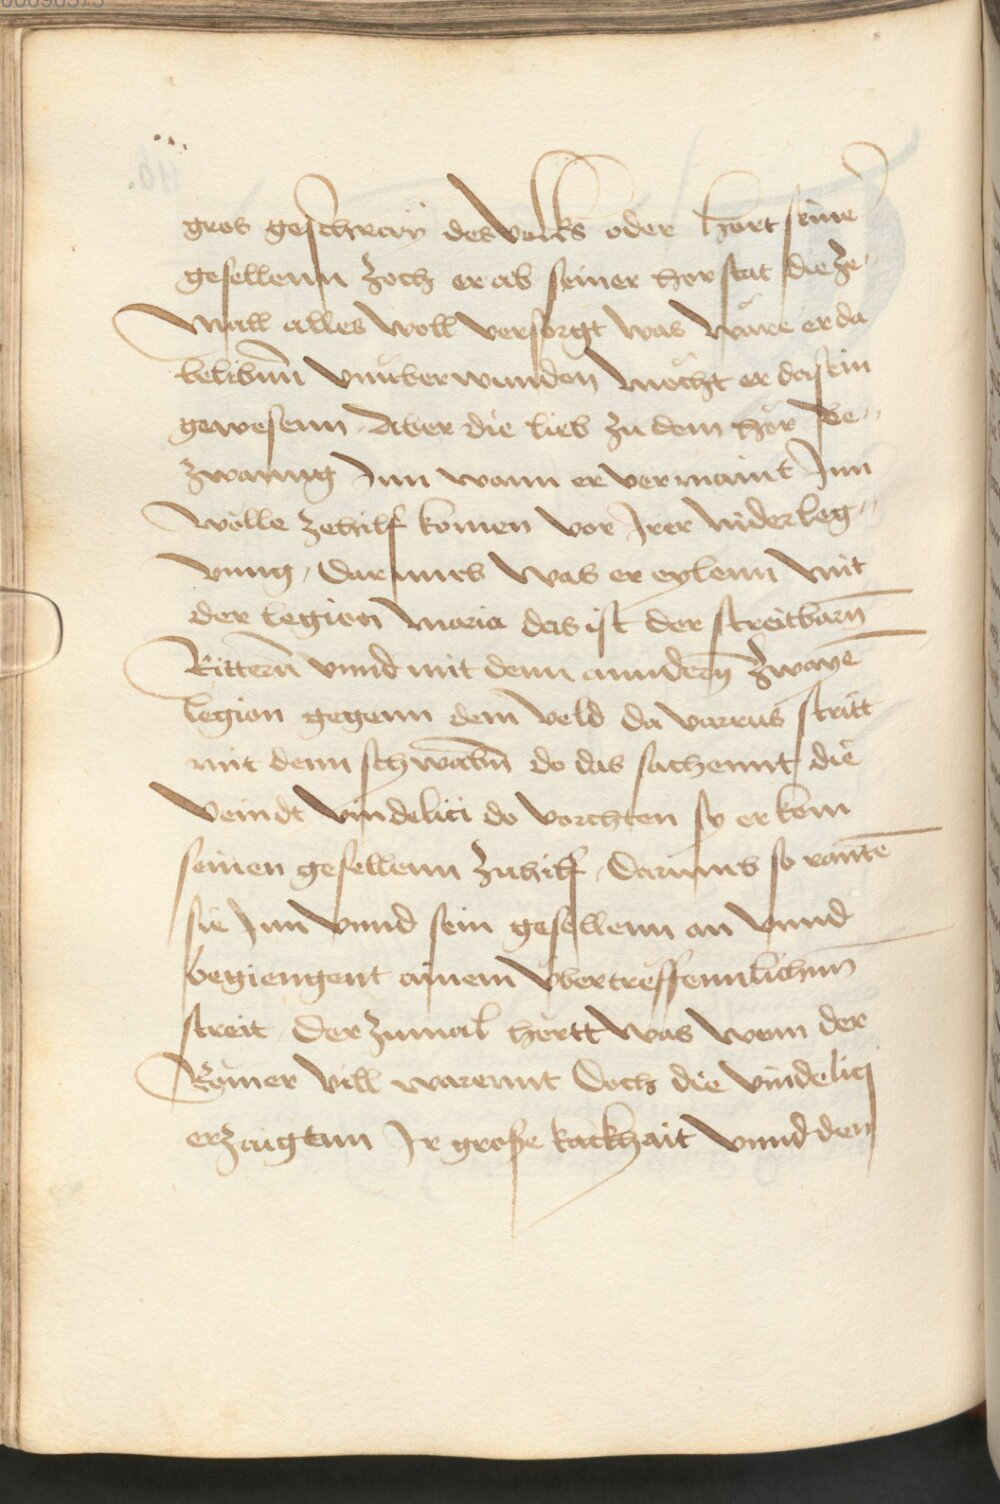 gros geschray des volks oder hort seine
gesellenn zoch er ab seiner hor stat die ze
mall alles woll versorgt was wäre er da
belibnn vnuberwunden mocht er da sein
gewesenn Aber die lieb zu dem hör be„
zwanng Inn wann er vermaint Inn
wölle zehilf komen vor Irer niderleg„
vung, Darumb was er eylenn mit
der legion maria das ist der streitbarn
Rittern vnnd mit denn anndern zwaye
legion gegenn dem veld da varrus stritt
mit denn schwabn do das sachennt die
veindt vindelici do vorchten sy er kem
seinen gesellenn zuhilf, Darumb so rante
sie Inn vnnd sein gesellenn an vnnd
begiengent ainem vbertreffennlichnn
streit Der zumal hertt was wem der
Römer vill warennt Doch die vindelicj
erzaigtnn Ir große kackhait vnnd den